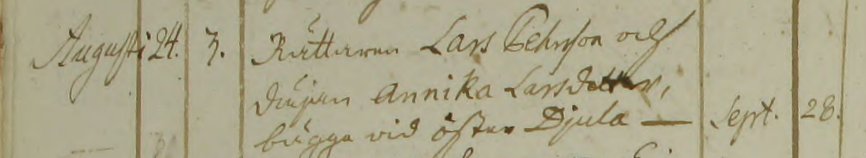 Augusti 24. 3. Rättaren Lars Pehrson och
Pigan Annika Larsdotter,
bägge vid öster Djula — Sept. 28.